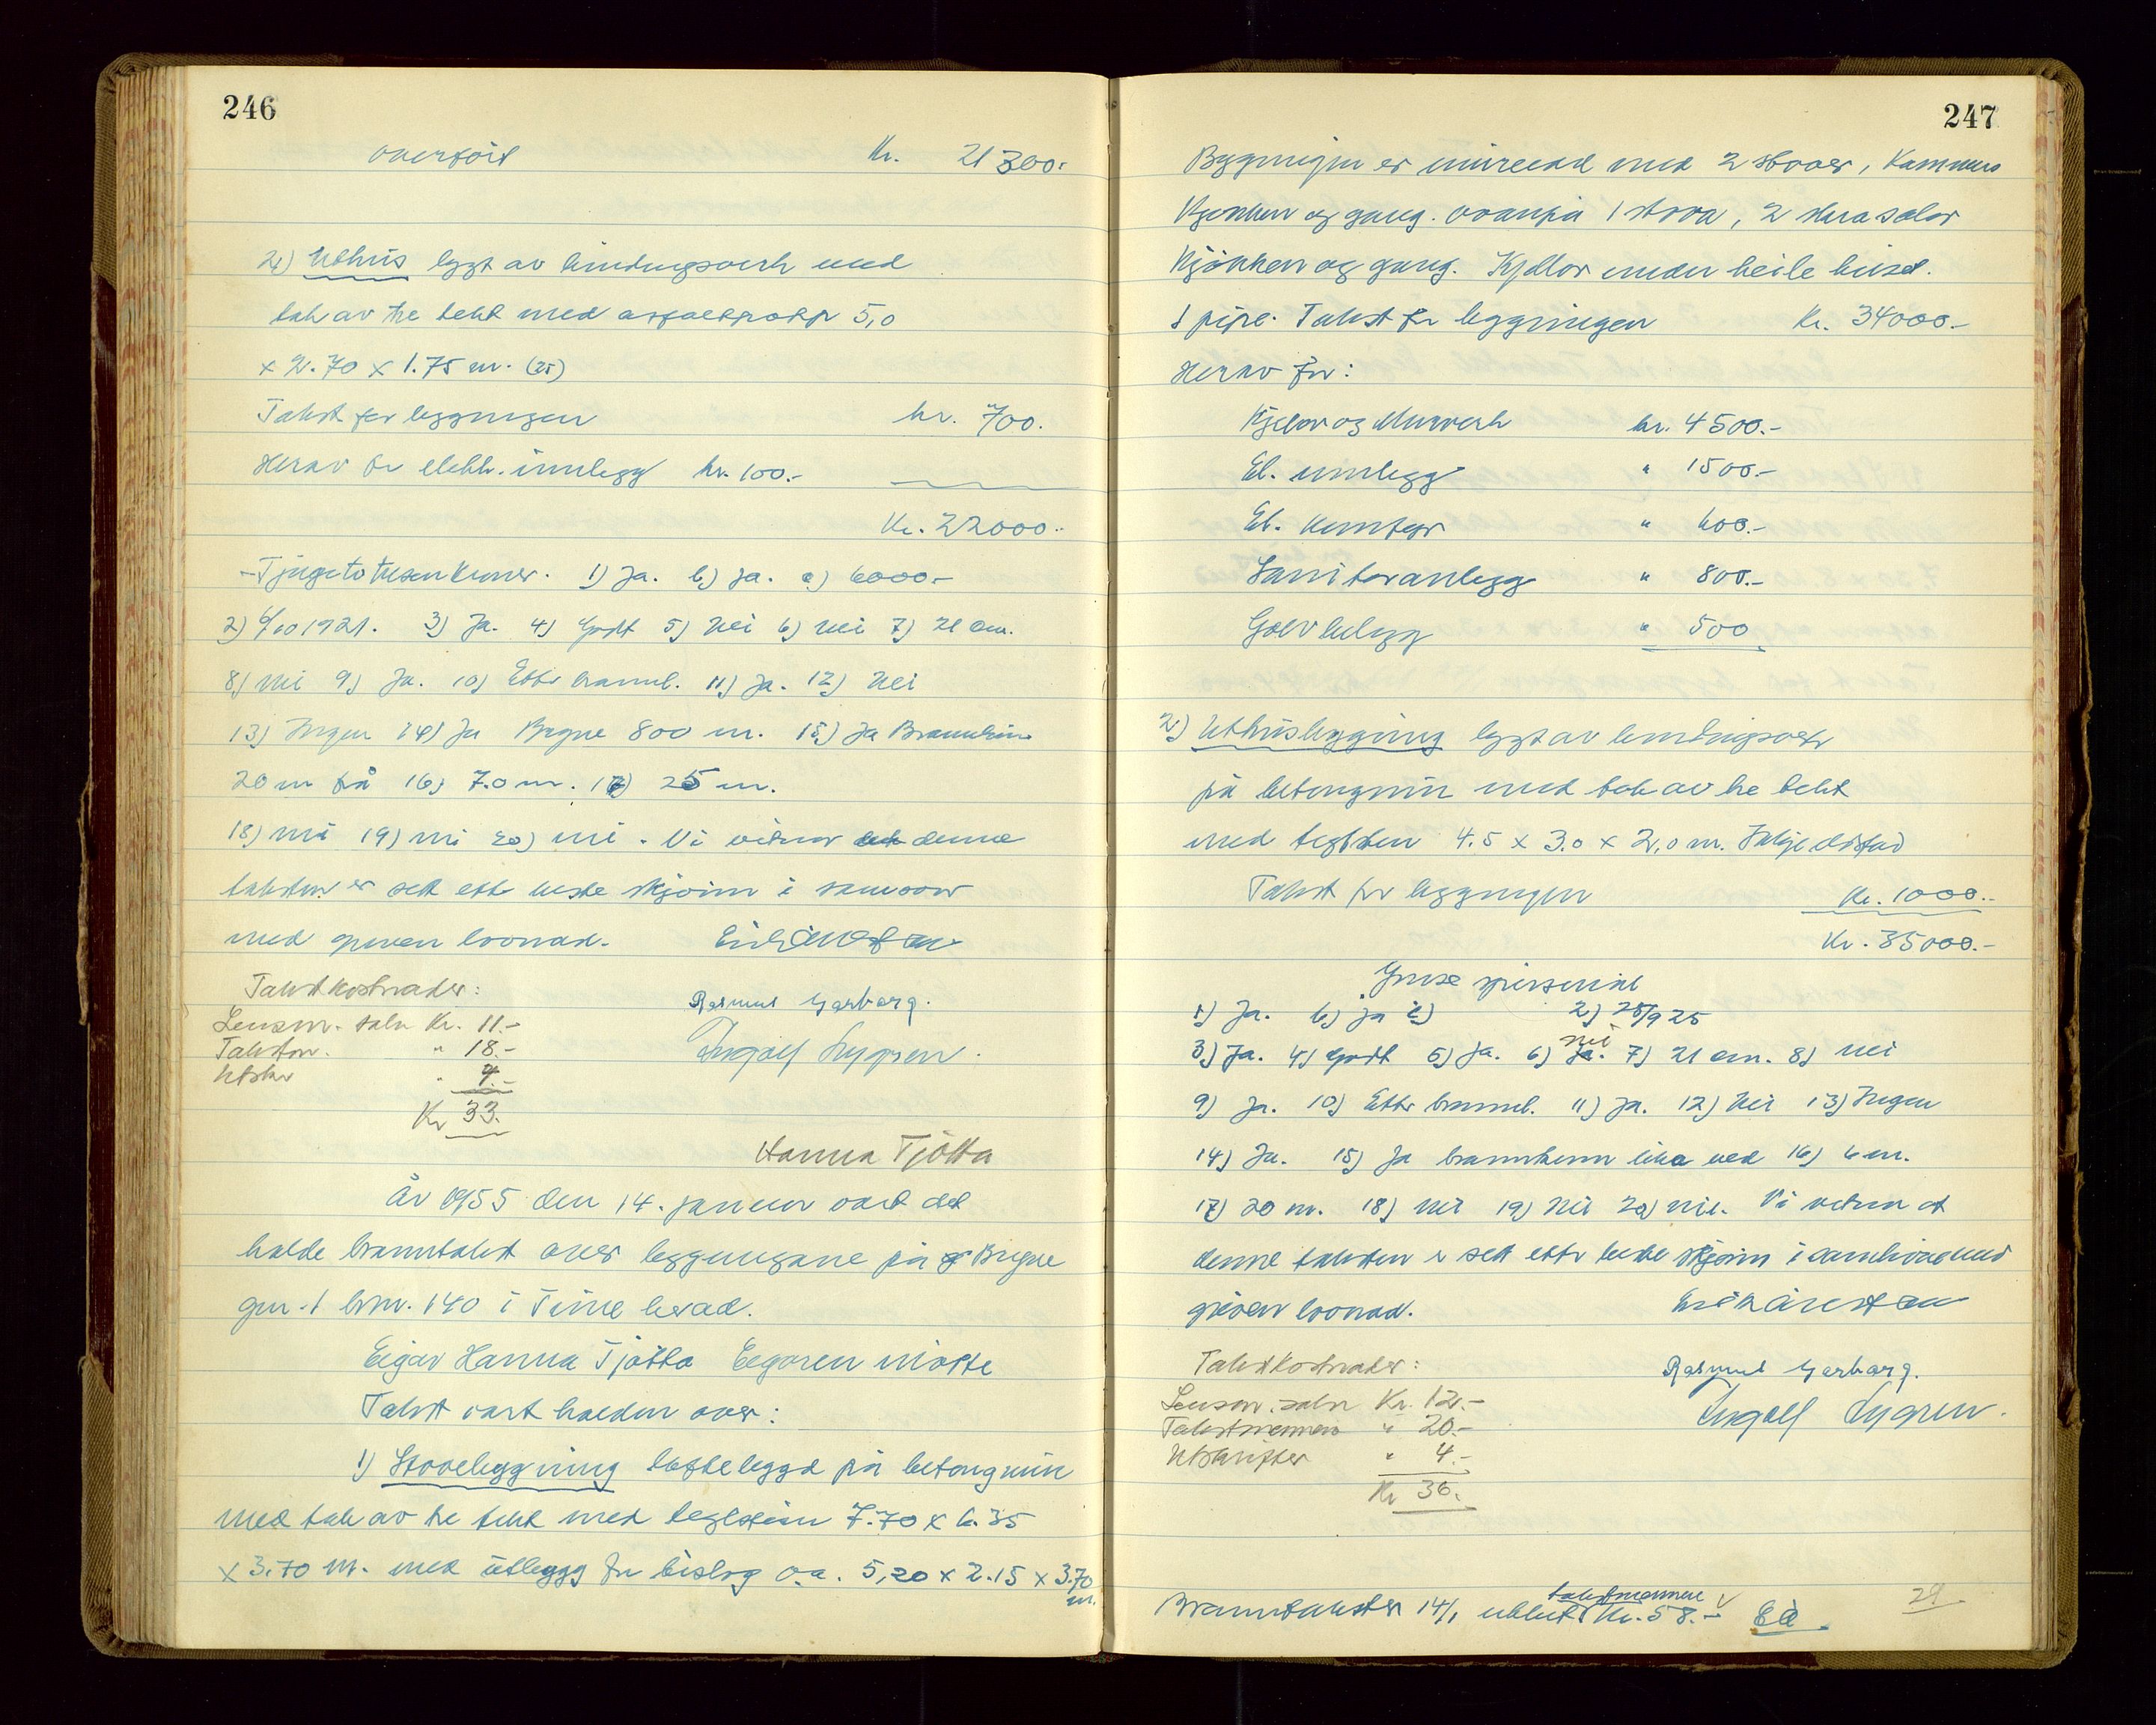 246
overført Kr. 21300.-
2) Uthus bygt av bindingsverk med
tak av tre tekt med asfaltpapp 5,0
x 2.70 x 1.75 m. (25)
Takst for bygningen kr. 700.
Herav for elektr. innlegg kr. 100.-
Kr. 22000.-
-Tjugeto tusen kroner. 1) Ja. b) Ja. c) 6000.-
2) 1921. 3) Ja. 4) Godt 5) Nei 6) Nei 7) 21 cm.
8) nei 9) Ja. 10) Ettr brannl. 11) Ja. 12) Nei
13) Ingen 14) Ja Bryne 800 m. 15) Ja Brannkum
20 m frå 16) 7.0 m. 17) 25 m.
18) nei 19) nei 20) nei. Vi vitnar at denne
taksten er sett ette beste skjønn i samsvar
med given lovnad.
Taktskostnader: Rasmus Garborg.
Lensm. saln Kr. 11.- Ingolf Lygren.
Takstm. " 18.-
Utskr " 4.-
Kr 33.
Hanna Tjötta
År 1955 den 14. januar vart det
halde branntakst over bygningane på Bryne
gnr. 1 bnr. 140 i Time herad.
Eigar Hanna Tjøtta Eigaren møtte
Takst vart halden over:
1) Stovebygning loftebygd på betongmur
med tak av tre tekt med teglstein 7.70 x 6.35
x 3.70 m. med utbygg for bislag o.a. 5,20 x 2.15 x 3.70
m.
247
Bygningen er innreidd med 2 stover, Kammers
Kjøkken og gang. ovanpå 1 stova, 2
Kjøkken og gang. Kjellar under heile huset.
1 pipe. Takst for bygningen Kr. 34000.-
Herav for:
Kjelar og Murverk kr. 4500.-
El. innlegg " 1500.-
El. Komfyr " 600.-
Sanitæranlegg " 800.-
Golvbelegg " 500
2) Uthusbygning bygt av bindingsverk
på betongmur med tak av tre tekt
med teglsten 4.5 x 3.0 x 2,0 m. Ikkje eldstad
Takst for bygningen Kr. 1000.-
Kr. 35000.-
1) Ja. b) ja c) 2) 28/9 25
nei
3) Ja. 4) Godt 5) Ja. 6) Ja. 7) 21 cm. 8) Nei
9) Ja. 10) Ettr brannl. 11) Ja. 12) Nei 13) Ingen
14) Ja. 15) Ja brannkum like ved 16) 6 m.
17) 20 m. 18) Nei 19) Nei 20) nei. Vi vitnar at
denne taksten er sett ettr beste skjønn i samhøve med
given lovnad.
Takstkostnader: Rasmus Garborg.
Lensm. saln Kr. 12.- Ingolf Lygren.
Takstmennene " 20.-
Utskrifter " 4.-
Kr 36.
takstmennene
Branntakster 14/1 utbetalt Kr. 58.-